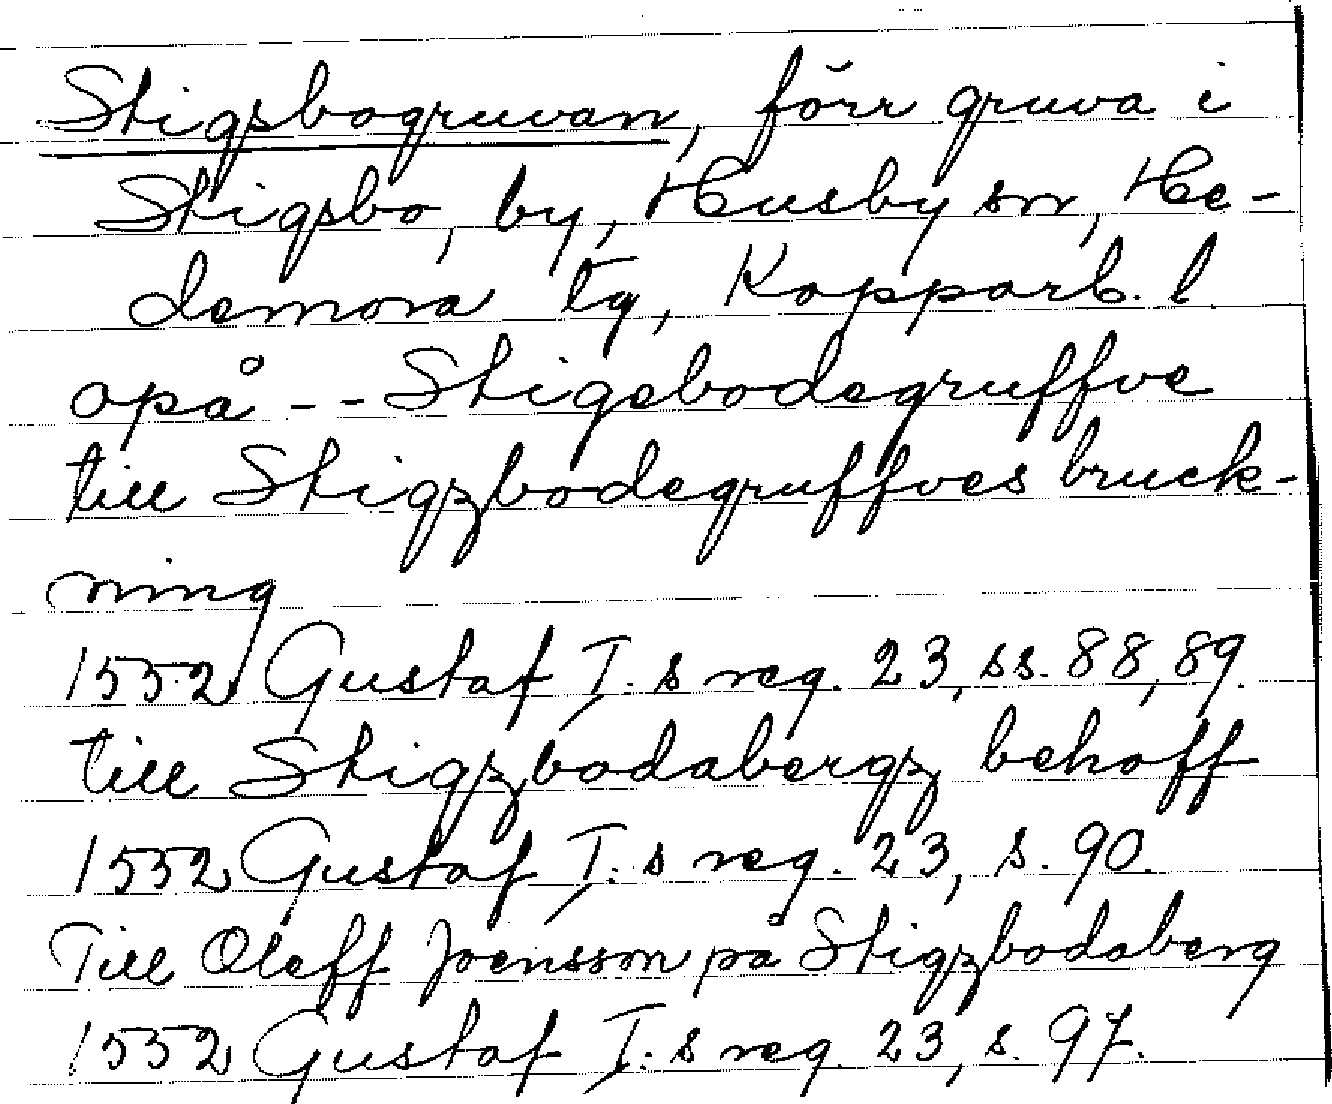 Stigsbogruvan, förr gruva i
Stigsbo, by, Husby sn, He-
demora tg, Kopparb. l.
opå - - Stigsbodegruffve
till Stigzbodegruffves bruck-
ning
1552 Gustaf I:s reg. 23, ss. 88, 89.
till Stigzbodabergz behoff
1552 Gustaf I:s reg. 23, s. 90.
Till Oleff Joensson på Stigzbodaberg
1552 Gustaf I:s reg. 23, s. 97.